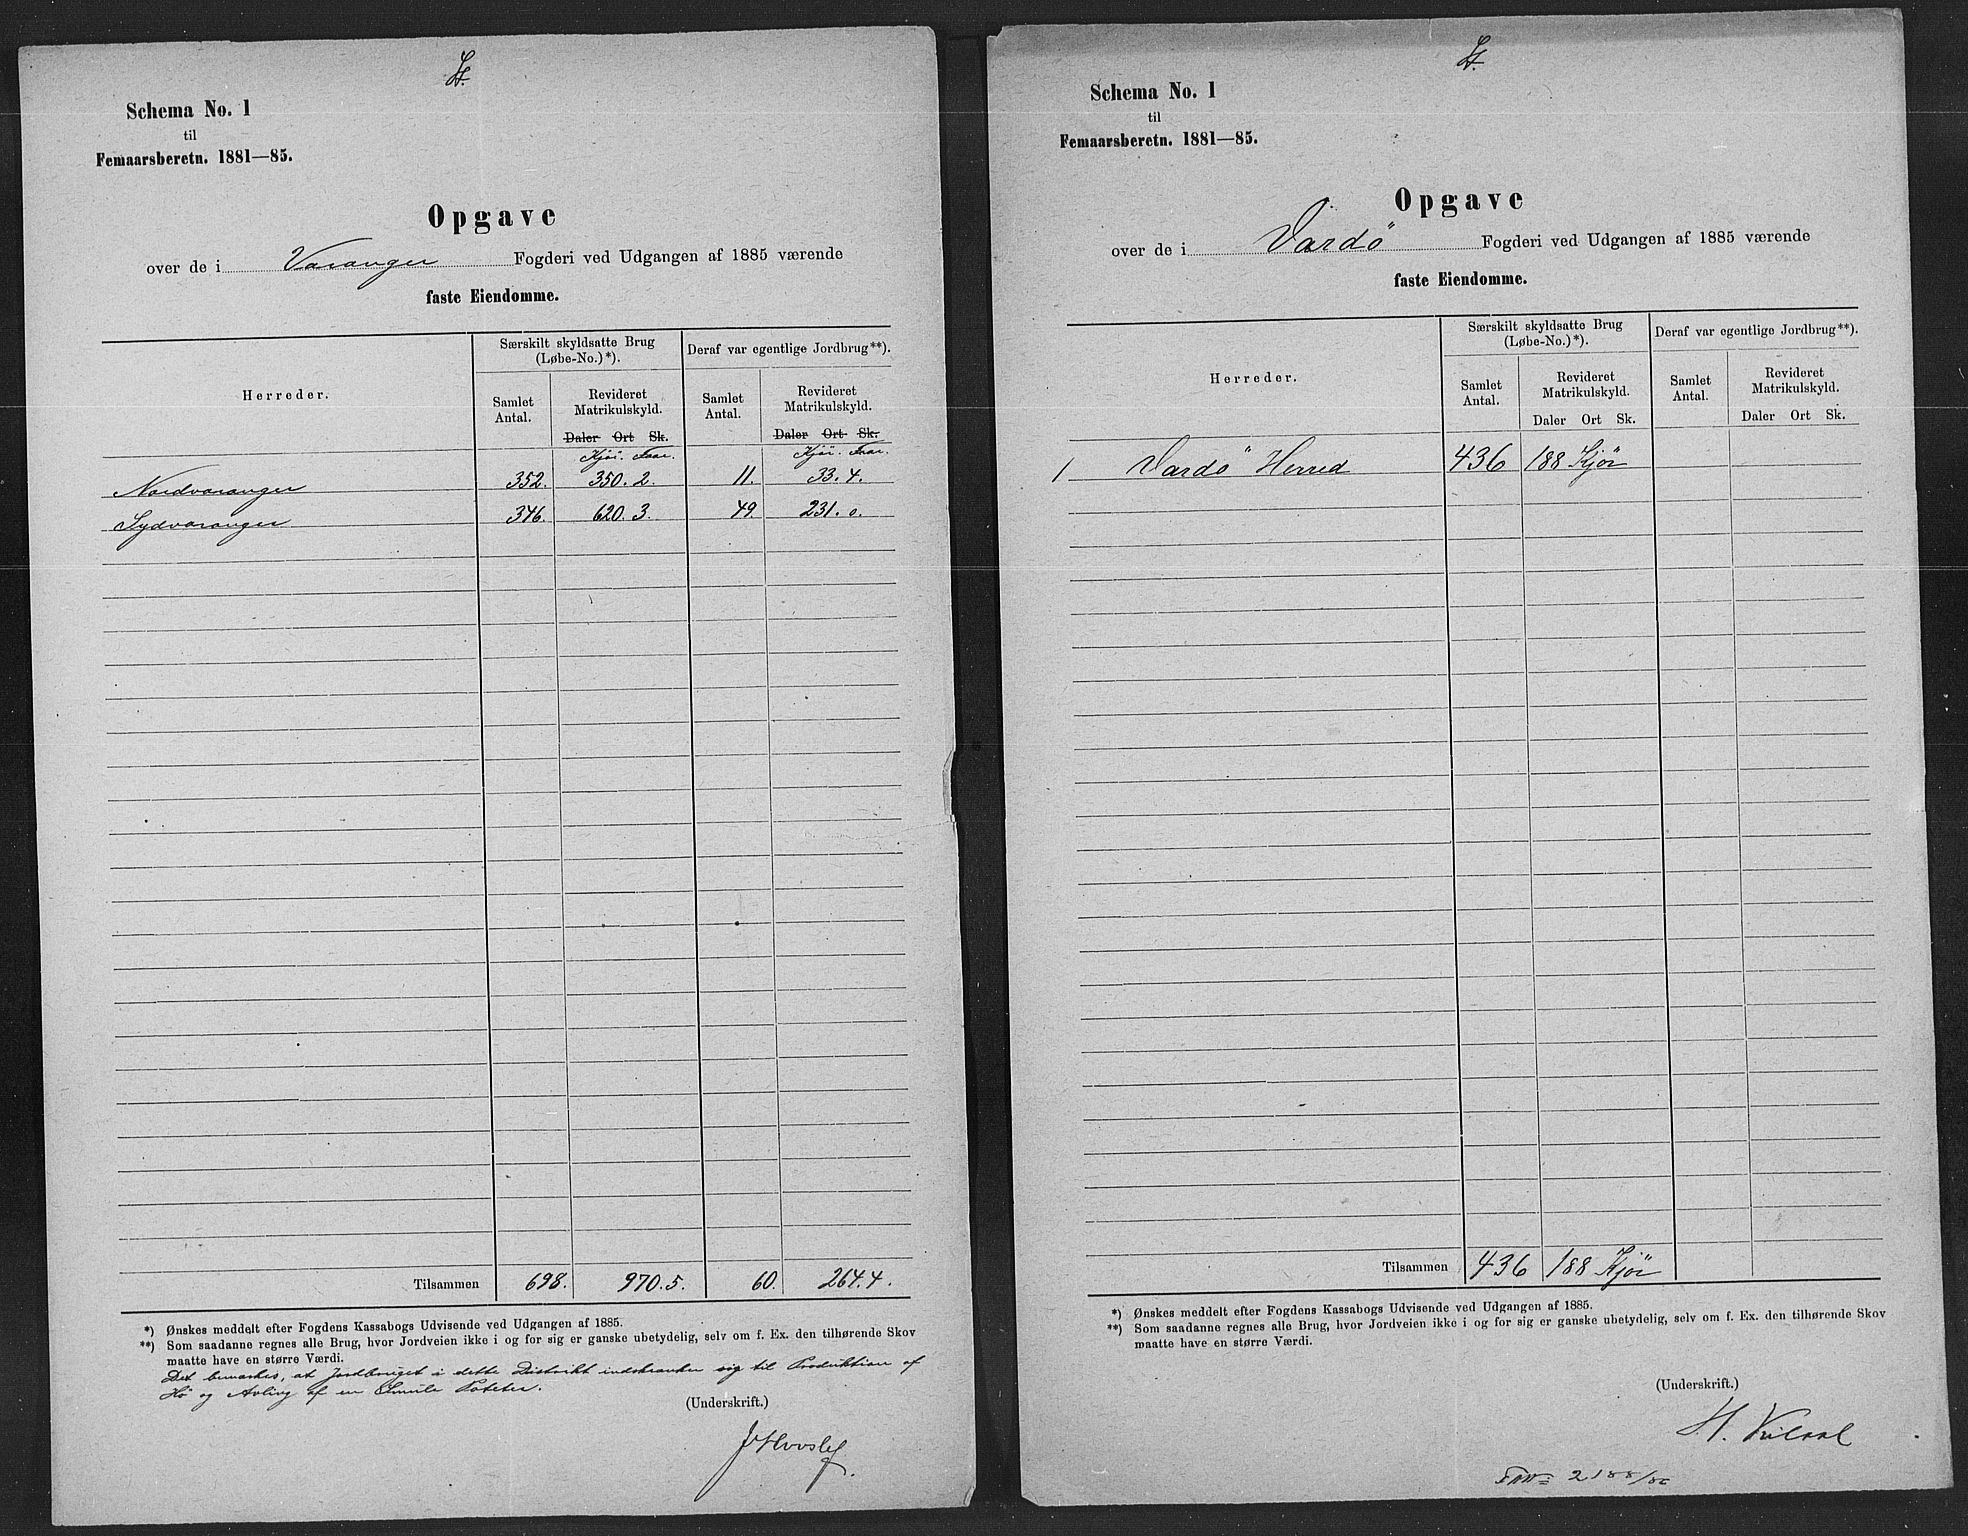 Schema No. 1
til
Femaarsberetn. 1881—85.
Opgave
over de i Varanger Fogderi ved Udgangen af 1885 værende
faste Eiendomme.
Herreder.
Særskilt skyldsatte Brug
(Løbe-No.)*).
Deraf var egentlige Jordbrug**).
Samlet
Antal.
Revideret
Matrikulskyld.
Daler Ort Sk.
Samlet
Antal.
Revideret
Matrikulskyld.
Daler Ort Sk.
Kjør. Faar. Kjør. Faar.
Nordvaranger 352. 350. 2. 11. 33. 4.
Sydvaranger 346. 620. 3. 49. 231. 0.
Tilsammen 698. 970. 5. 60. 264. 4.
*) Ønskes meddelt efter Fogdens Kassabogs Udvisende ved Udgangen af 1885.
**) Som saadanne regnes alle Brug, hvor Jordveien ikke i og for sig er ganske ubetydelig, selv om f. Ex. den tilhørende Skov
maatte have en større Værdi.
Det bemærkes, at Jordbruget i dette Distrikt indskrænker sig til Produktion af
Hø og Avling af en Smule Poteter.
(Underskrift.)
Schema No. 1
til
Femaarsberetn. 1881—85.
Opgave
over de i Vardö Fogderi ved Udgangen af 1885 værende
faste Eiendomme.
Herreder.
Særskilt skyldsatte Brug
(Løbe-No.)*).
Deraf var egentlige Jordbrug**).
Samlet
Antal.
Revideret
Matrikulskyld.
Daler Ort Sk.
Samlet
Antal.
Revideret
Matrikulskyld.
Daler Ort Sk.
1 Vardö Herred 436 188 Kjör
Tilsammen 436 188 Kjör
*) Ønskes meddelt efter Fogdens Kassabogs Udvisende ved Udgangen af 1885.
**) Som saadanne regnes alle Brug, hvor Jordveien ikke i og for sig er ganske ubetydelig, selv om f. Ex. den tilhørende Skov
maatte have en større Værdi.
(Underskrift.)
2188/86